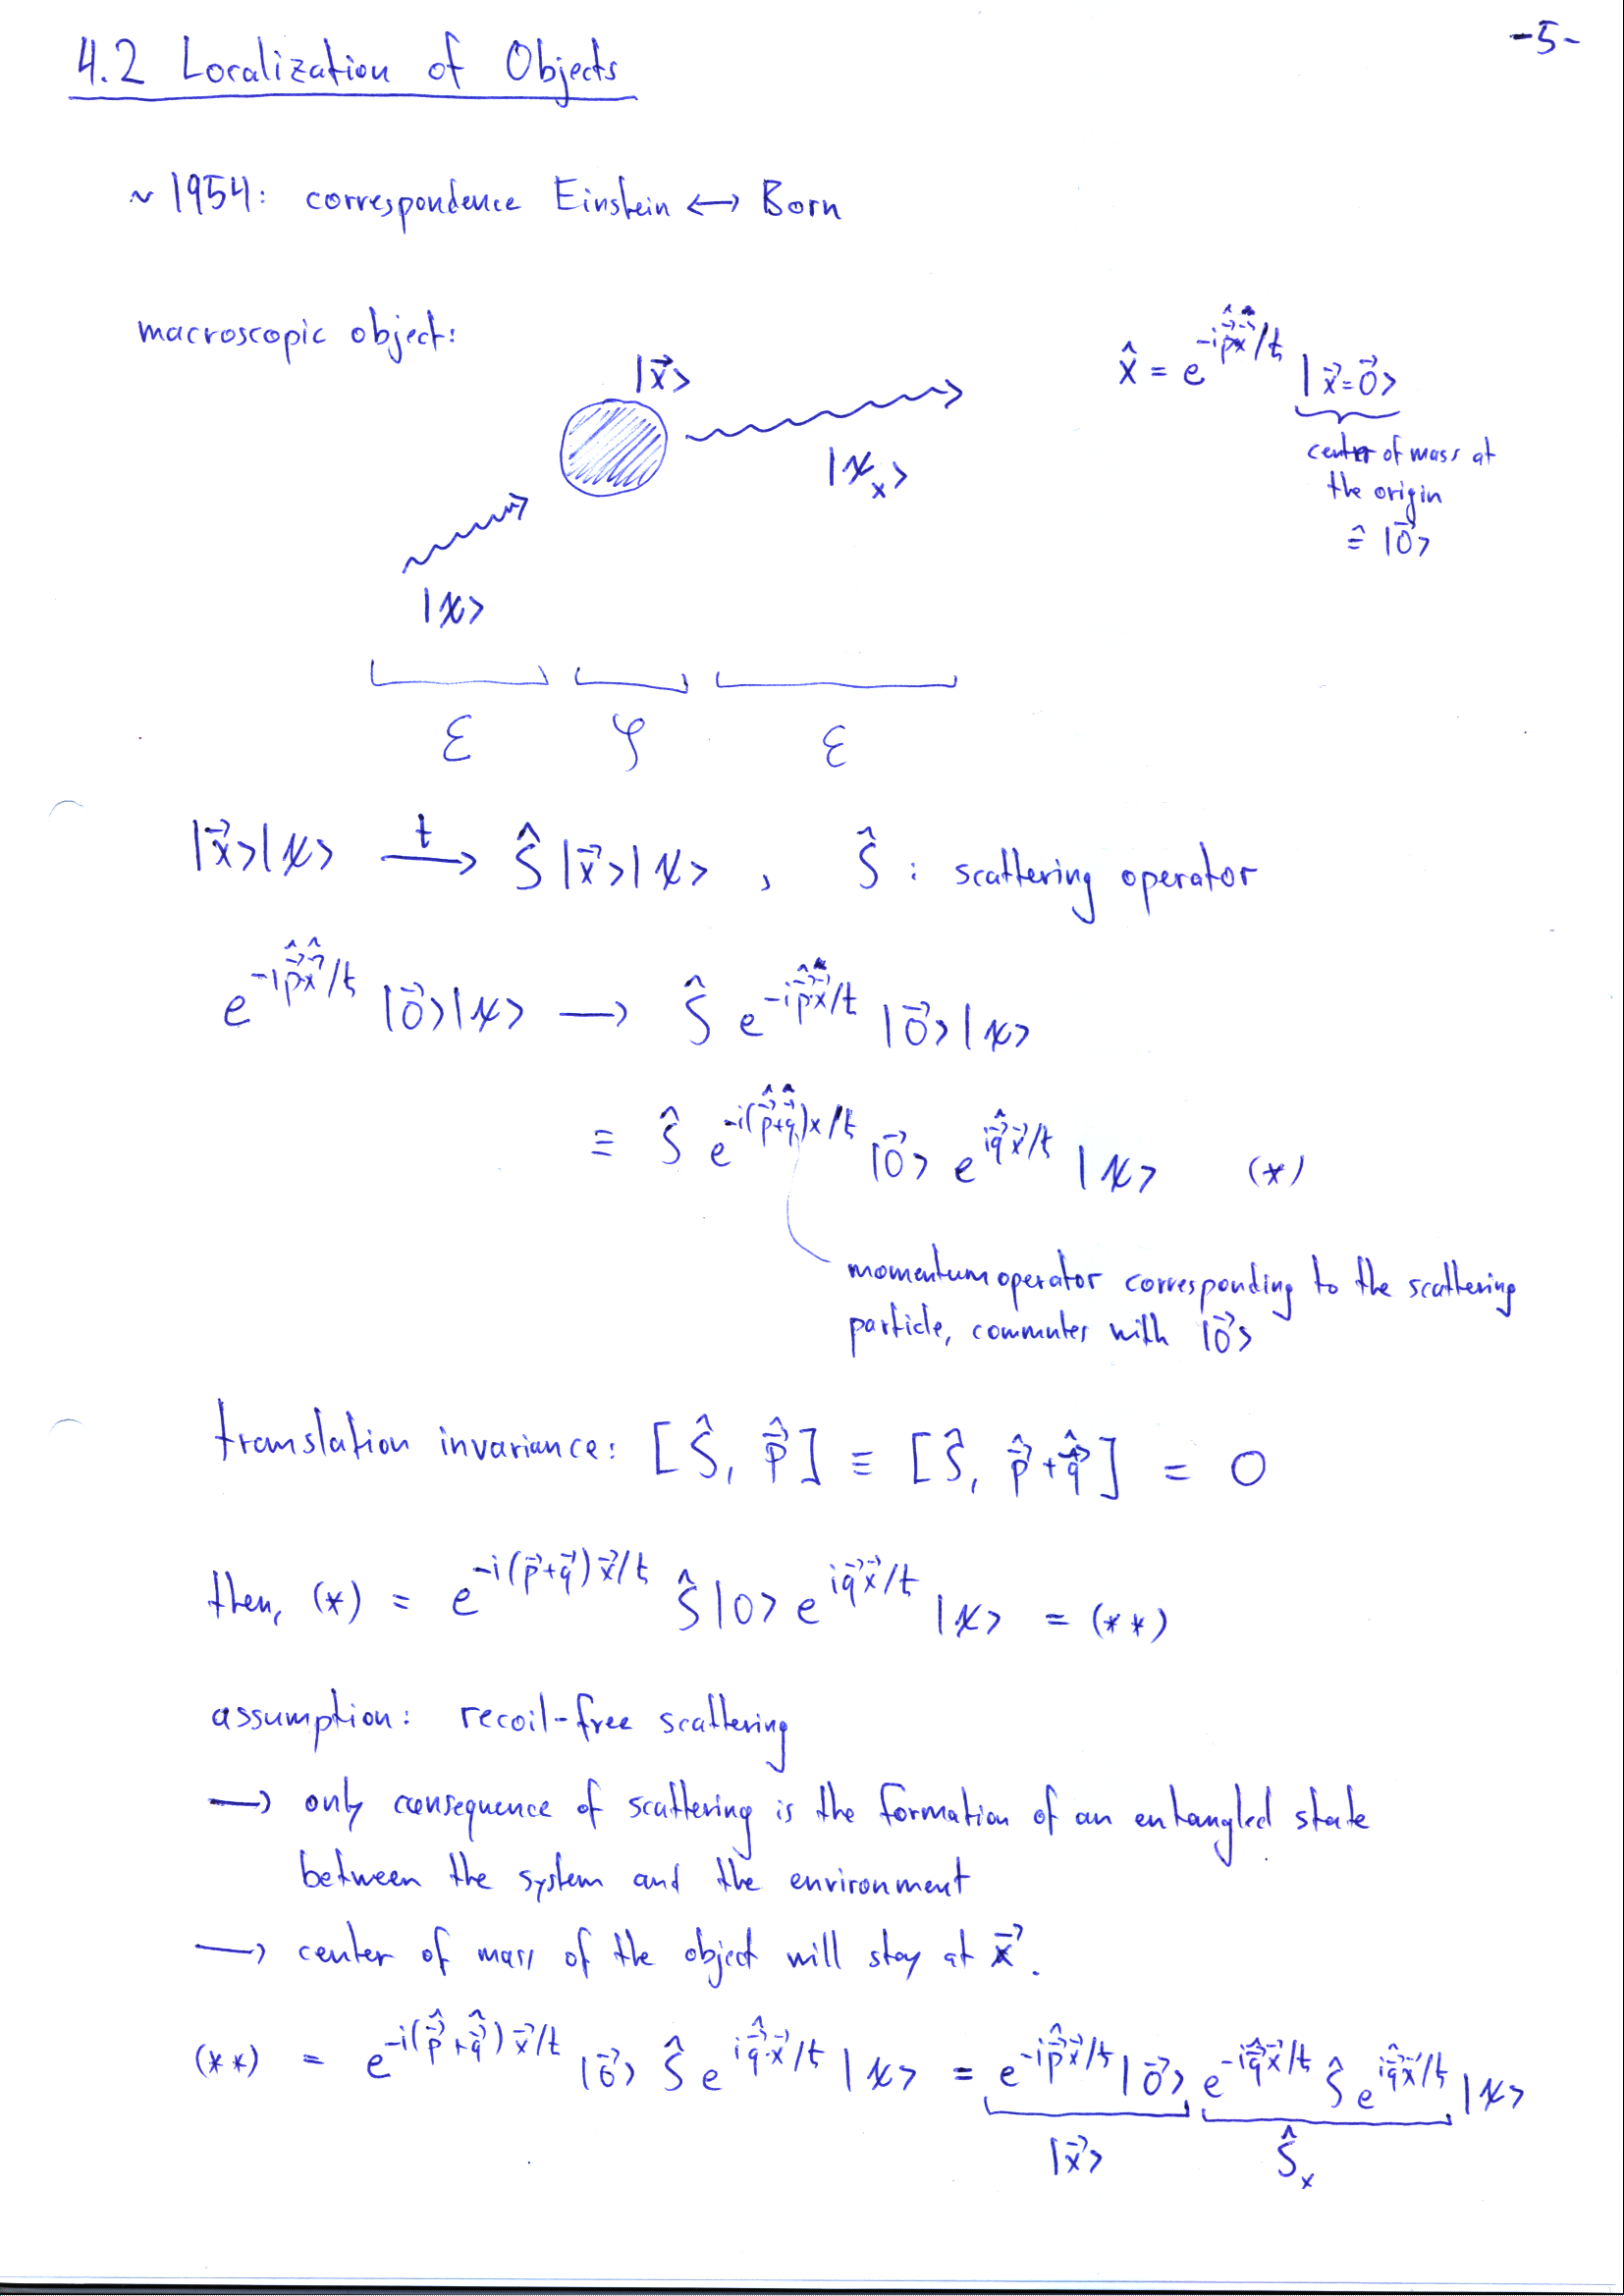 -5-
4.2 Localization of Objects
~ 1954: correspondence Einstein ⟷ Born
macroscopic object:
|x⃗⟩
x̂ = e^{-i p̂⃗ x⃗/ħ} |x⃗=0⃗⟩
center of mass at
the origin
≙ |0⃗⟩
|χₓ⟩
|χ⟩
ℰ 𝒮 ℰ
|x⃗⟩|χ⟩ —t→ Ŝ |x⃗⟩|χ⟩ , Ŝ : scattering operator
e^{-i p̂⃗ x̂⃗/ħ} |0⃗⟩|χ⟩ → Ŝ e^{-i p̂⃗ x⃗/ħ} |0⃗⟩|χ⟩
≡ Ŝ e^{-i(p̂⃗+q̂⃗)x/ħ} |0⃗⟩ e^{i q̂⃗ x⃗/ħ} |χ⟩ (*)
momentum operator corresponding to the scattering
particle, commutes with |0⃗⟩
translation invariance: [Ŝ, p̂⃗] ≡ [Ŝ, p̂⃗+q̂⃗] = 0
then, (*) = e^{-i(p⃗+q⃗)x⃗/ħ} Ŝ|0⟩ e^{i q⃗ x⃗/ħ} |χ⟩ = (**)
assumption: recoil-free scattering
→ only consequence of scattering is the formation of an entangled state
between the system and the environment
→ center of mass of the object will stay at x⃗.
(**) = e^{-i(p̂⃗+q̂⃗)x⃗/ħ} |0⃗⟩ Ŝ e^{i q̂⃗·x⃗/ħ} |χ⟩ = e^{-i p̂⃗ x⃗/ħ}|0⃗⟩ e^{-i q̂⃗ x⃗/ħ} Ŝ e^{i q̂⃗ x⃗/ħ} |χ⟩
|x⃗⟩ Ŝₓ